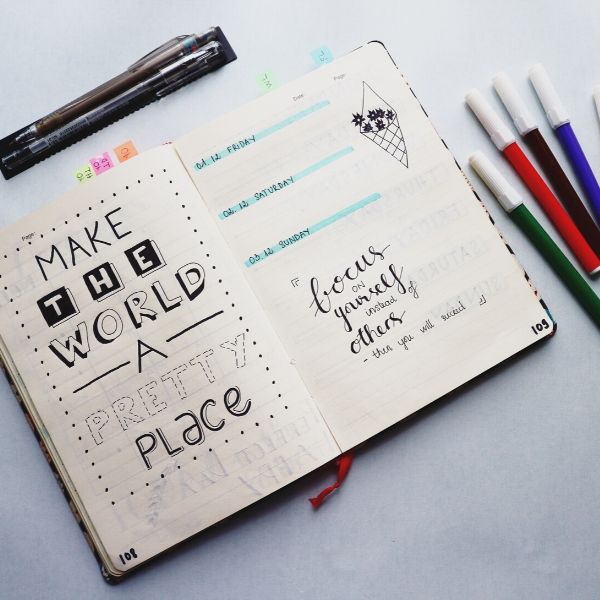 Page:
MAKE
THE
WORLD
A
PRETTY
PLACE
108
Date: Page:
01. 12 FRIDAY
02. 12 SATURDAY
03. 12 SUNDAY
focus
on
yourself
instead of
others
- then you will succeed
109